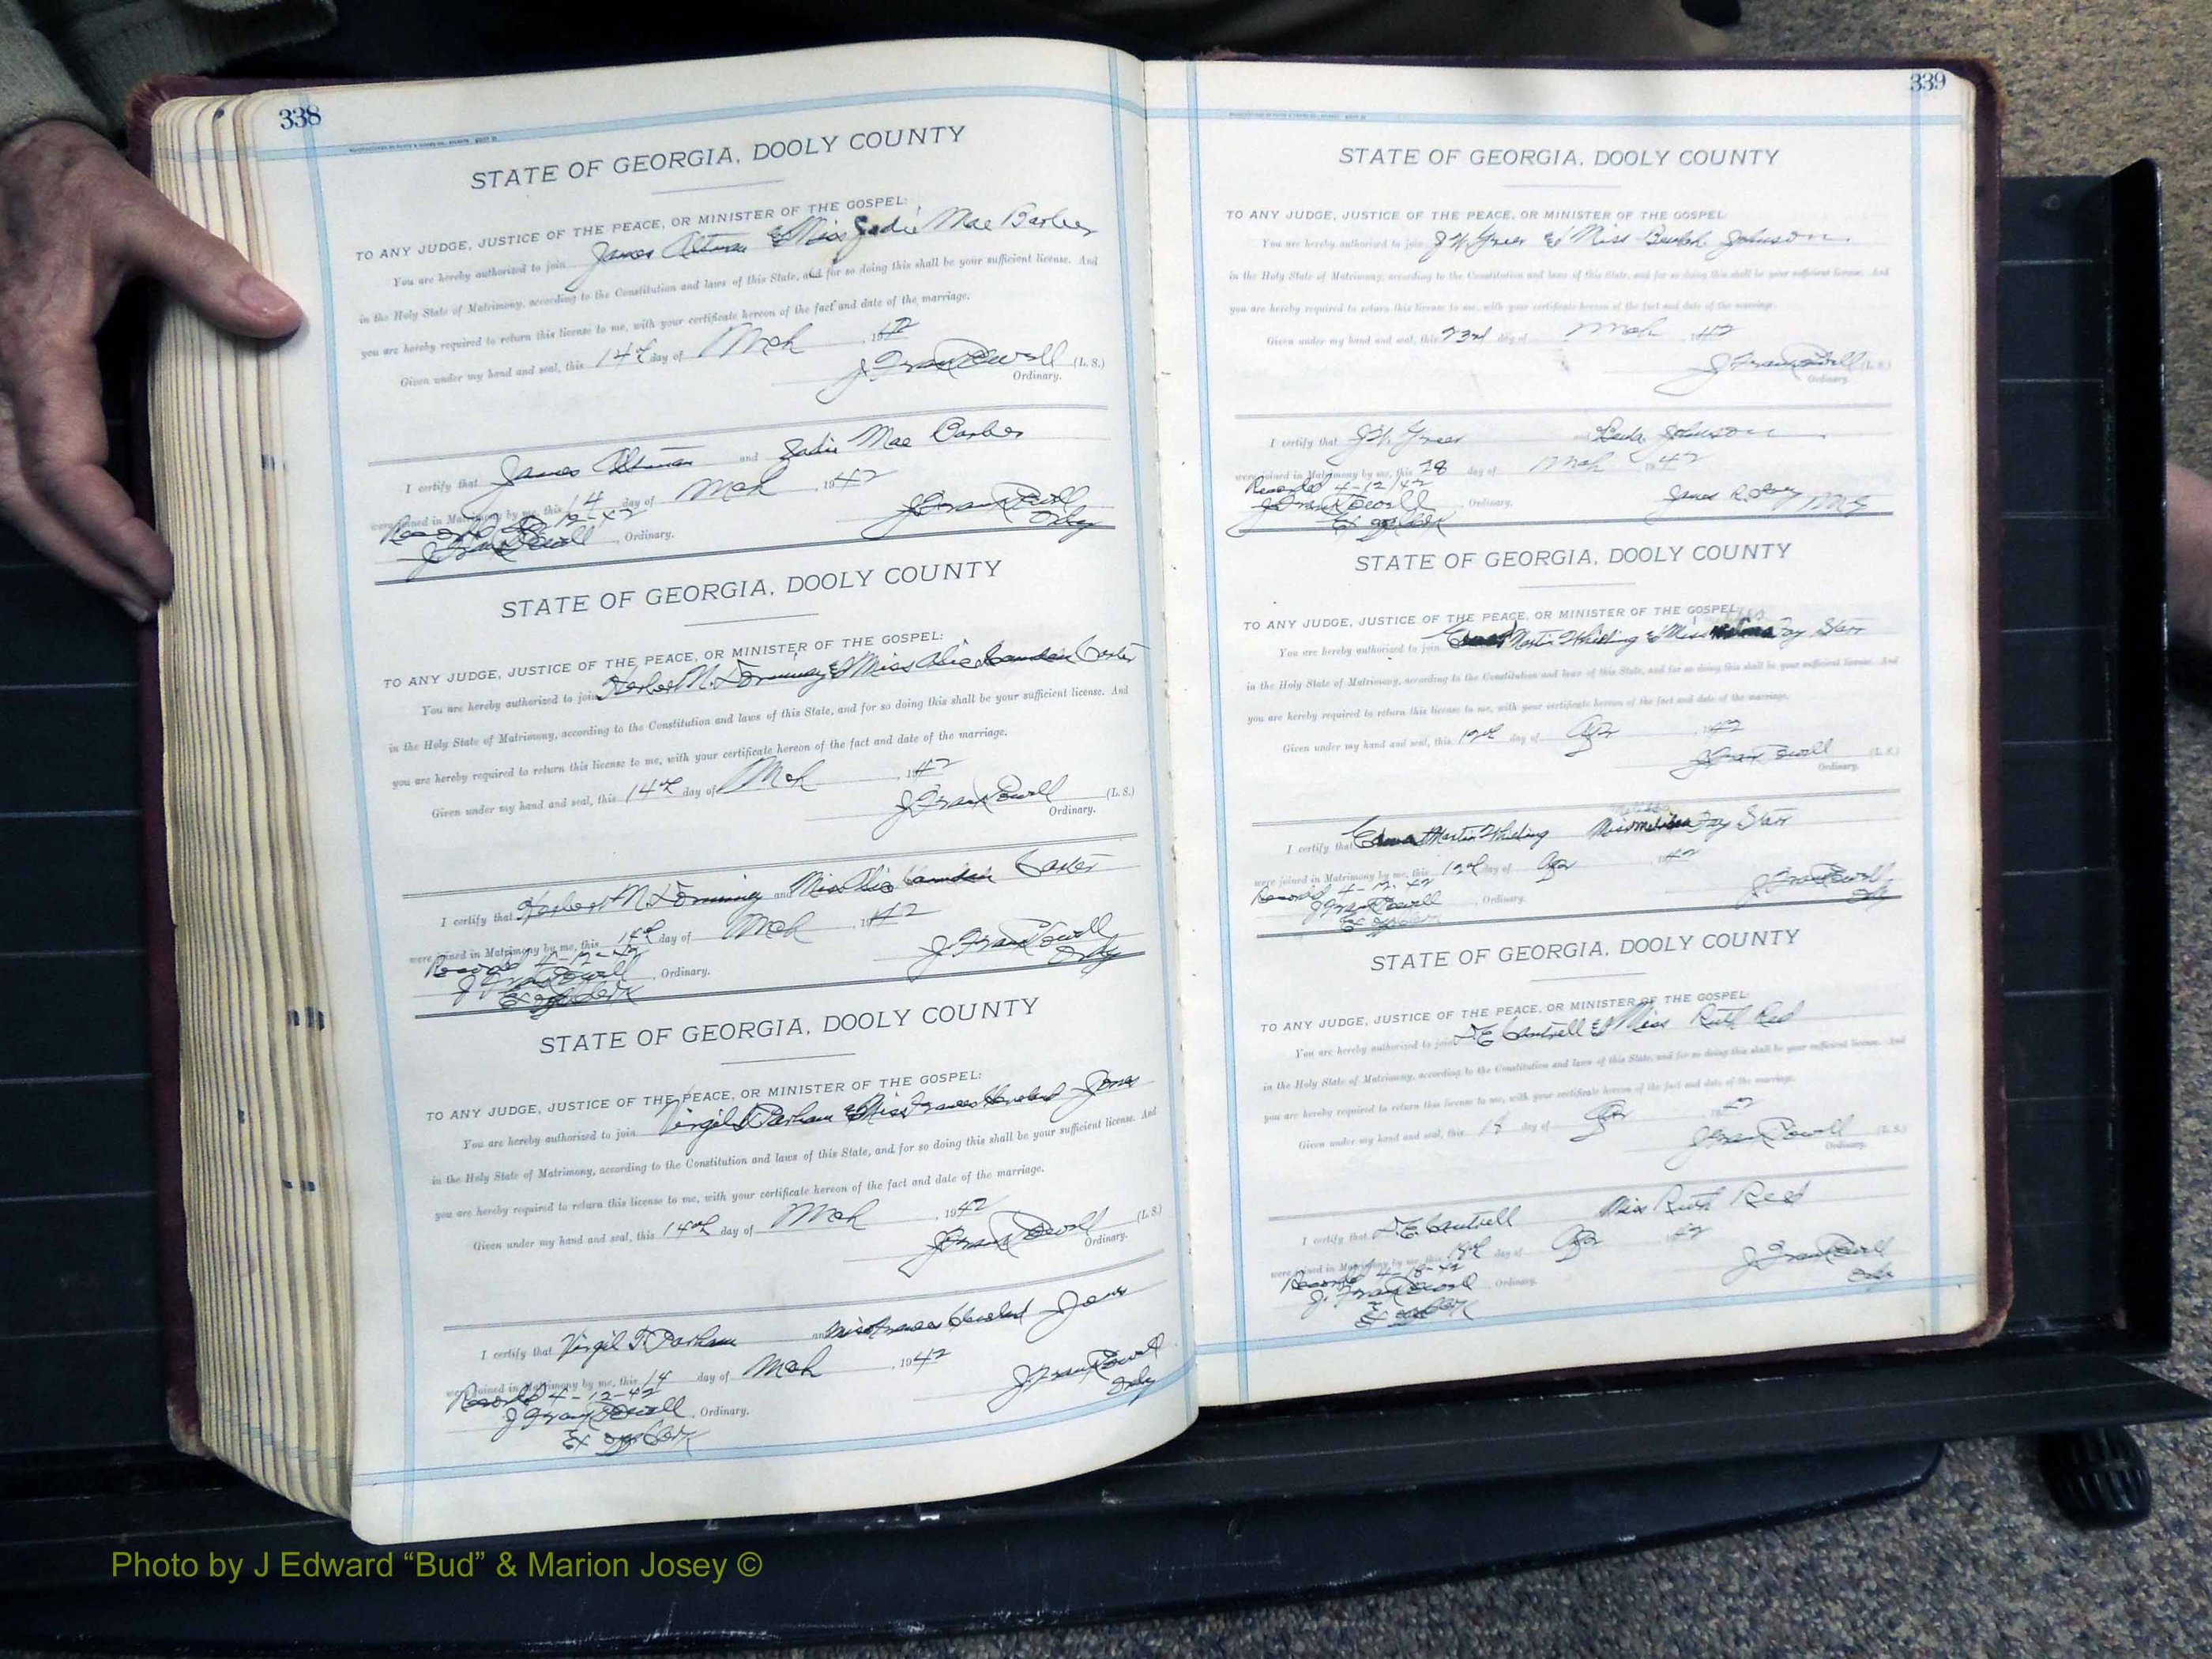 338
STATE OF GEORGIA, DOOLY COUNTY
TO ANY JUDGE, JUSTICE OF THE PEACE, OR MINISTER OF THE GOSPEL:
You are hereby authorized to join James Altman & Miss Sadie Mae Barber
in the Holy State of Matrimony, according to the Constitution and laws of this State, and for so doing this shall be your sufficient license. And
you are hereby required to return this license to me, with your certificate hereon of the fact and date of the marriage.
Given under my hand and seal, this 14th day of Mch , 1942
J Frank Powell (L. S.)
Ordinary.
I certify that James Altman and Sadie Mae Barber
were joined in Matrimony by me, this 14 day of Mch , 1942
Recorded 4-12-42
J Frank Powell
J Frank Powell , Ordinary.
Ordy
STATE OF GEORGIA, DOOLY COUNTY
TO ANY JUDGE, JUSTICE OF THE PEACE, OR MINISTER OF THE GOSPEL:
You are hereby authorized to join Herbert M. Dominey & Miss Carter
in the Holy State of Matrimony, according to the Constitution and laws of this State, and for so doing this shall be your sufficient license. And
you are hereby required to return this license to me, with your certificate hereon of the fact and date of the marriage.
Given under my hand and seal, this 14th day of Mch , 1942
J Frank Powell (L. S.)
Ordinary.
I certify that Herbert M. Dominey and Miss Carter
were joined in Matrimony by me, this 14th day of Mch , 1942
Recorded 4-12-42
J Frank Powell
J Frank Powell , Ordinary.
Ordy
Ex off Clerk
STATE OF GEORGIA, DOOLY COUNTY
TO ANY JUDGE, JUSTICE OF THE PEACE, OR MINISTER OF THE GOSPEL:
You are hereby authorized to join Virgil D Parham & Miss Frances Cleveland Jones
in the Holy State of Matrimony, according to the Constitution and laws of this State, and for so doing this shall be your sufficient license. And
you are hereby required to return this license to me, with your certificate hereon of the fact and date of the marriage.
Given under my hand and seal, this 14th day of Mch , 1942
J Frank Powell (L. S.)
Ordinary.
I certify that Virgil D Parham and Miss Frances Cleveland Jones
were joined in Matrimony by me, this 14 day of Mch , 1942
Recorded 4-12-42
J Frank Powell
J Frank Powell , Ordinary.
Ordy
Ex off Clerk
339
STATE OF GEORGIA, DOOLY COUNTY
TO ANY JUDGE, JUSTICE OF THE PEACE, OR MINISTER OF THE GOSPEL:
You are hereby authorized to join J W Greer & Miss Beulah Johnson
in the Holy State of Matrimony, according to the Constitution and laws of this State, and for so doing this shall be your sufficient license. And
you are hereby required to return this license to me, with your certificate hereon of the fact and date of the marriage.
Given under my hand and seal, this 23rd day of Mch , 1942
J Frank Powell (L. S.)
Ordinary.
I certify that J W Greer and Johnson
were joined in Matrimony by me, this 28 day of Mch , 1942
Recorded 4-12/42
James R.
J Frank Powell , Ordinary.
M G
Ex off Clerk
STATE OF GEORGIA, DOOLY COUNTY
TO ANY JUDGE, JUSTICE OF THE PEACE, OR MINISTER OF THE GOSPEL:
You are hereby authorized to join Martin Whiding & Miss Fay Starr
in the Holy State of Matrimony, according to the Constitution and laws of this State, and for so doing this shall be your sufficient license. And
you are hereby required to return this license to me, with your certificate hereon of the fact and date of the marriage.
Given under my hand and seal, this 12th day of Apr , 1942
J Frank Powell (L. S.)
Ordinary.
I certify that Martin Whiding Miss Melissa Fay Starr
were joined in Matrimony by me, this 12th day of Apr 1942
Recorded 4-12-42
J Frank Powell
J Frank Powell , Ordinary.
Ordy
Ex off Clerk
STATE OF GEORGIA, DOOLY COUNTY
TO ANY JUDGE, JUSTICE OF THE PEACE, OR MINISTER OF THE GOSPEL:
You are hereby authorized to join D. E. Cantrell & Miss Ruth Reed
in the Holy State of Matrimony, according to the Constitution and laws of this State, and for so doing this shall be your sufficient license. And
you are hereby required to return this license to me, with your certificate hereon of the fact and date of the marriage.
Given under my hand and seal, this 18 day of Apr , 1942
J Frank Powell (L. S.)
Ordinary.
I certify that D. E. Cantrell Miss Ruth Reed
were joined in Matrimony by me, this 18th day of Apr 1942
Recorded 4-18-42
J Frank Powell
J. Frank Powell , Ordinary.
Ordy
Ex off Clerk
Photo by J Edward “Bud” & Marion Josey ©